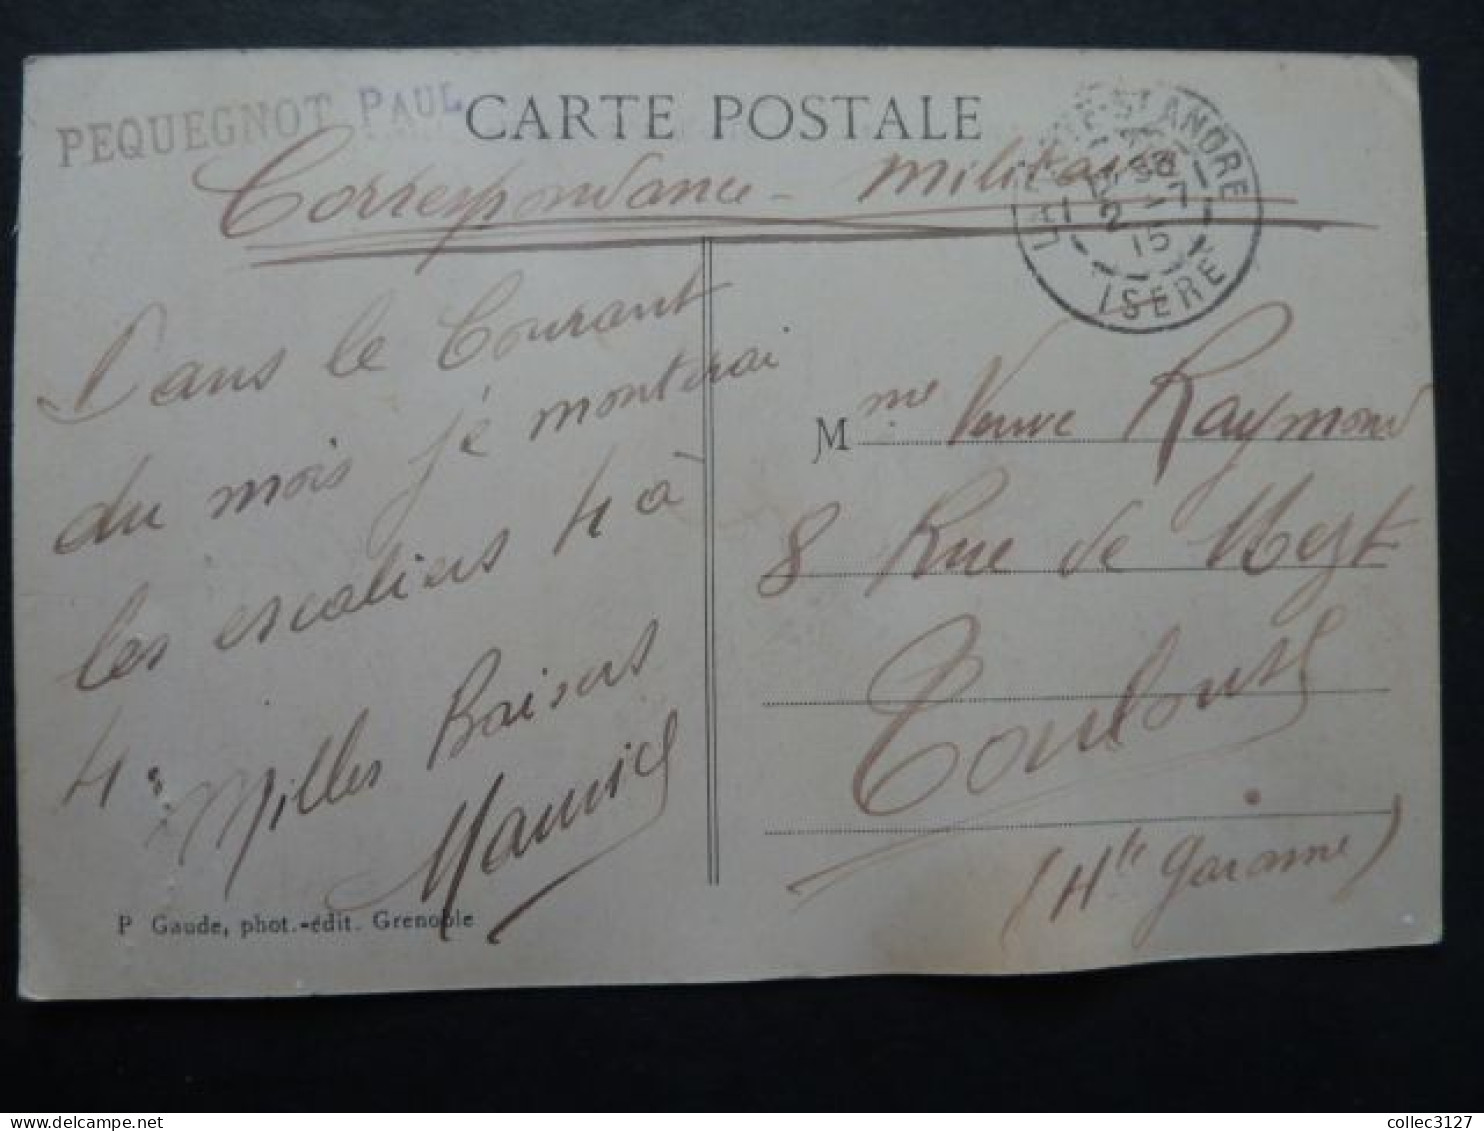 PEQUEGNOT PAUL
CARTE POSTALE
Correspondance - militaire
ST ANDRE
2 - 7
15
ISÈRE
Dans le Courant
du mois je monterai
les escaliers 4 à
4.
Milles Baisers
Maurice
P Gaude, phot.-édit. Grenoble
M me Veuve Raymond
8 Rue de Metz
Toulouse
(Hte Garonne)
collec3127